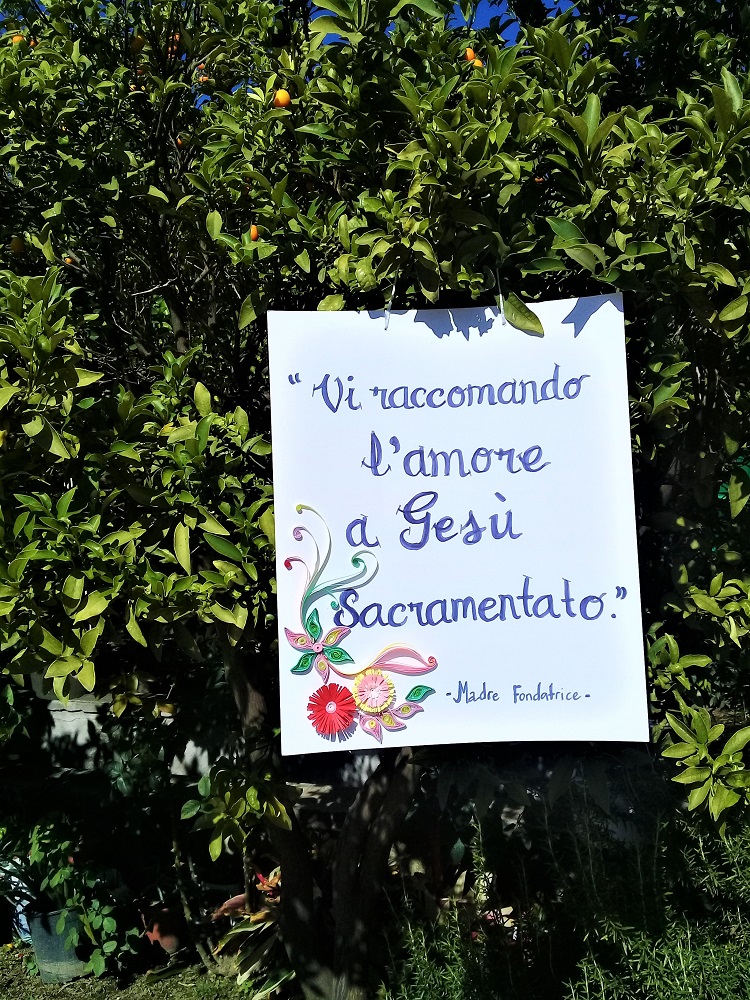 “Vi raccomando
l'amore
a Gesù
Sacramentato.”
-Madre Fondatrice-